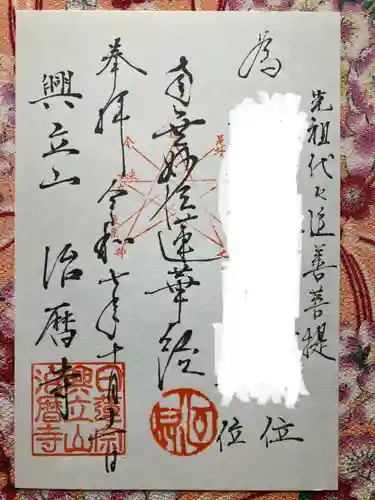 先祖代々追善菩提
為
位
位
南無妙法蓮華経
奉拝 令和七年十月十一日
興立山 治暦寺
日蓮宗
興立山
治暦寺